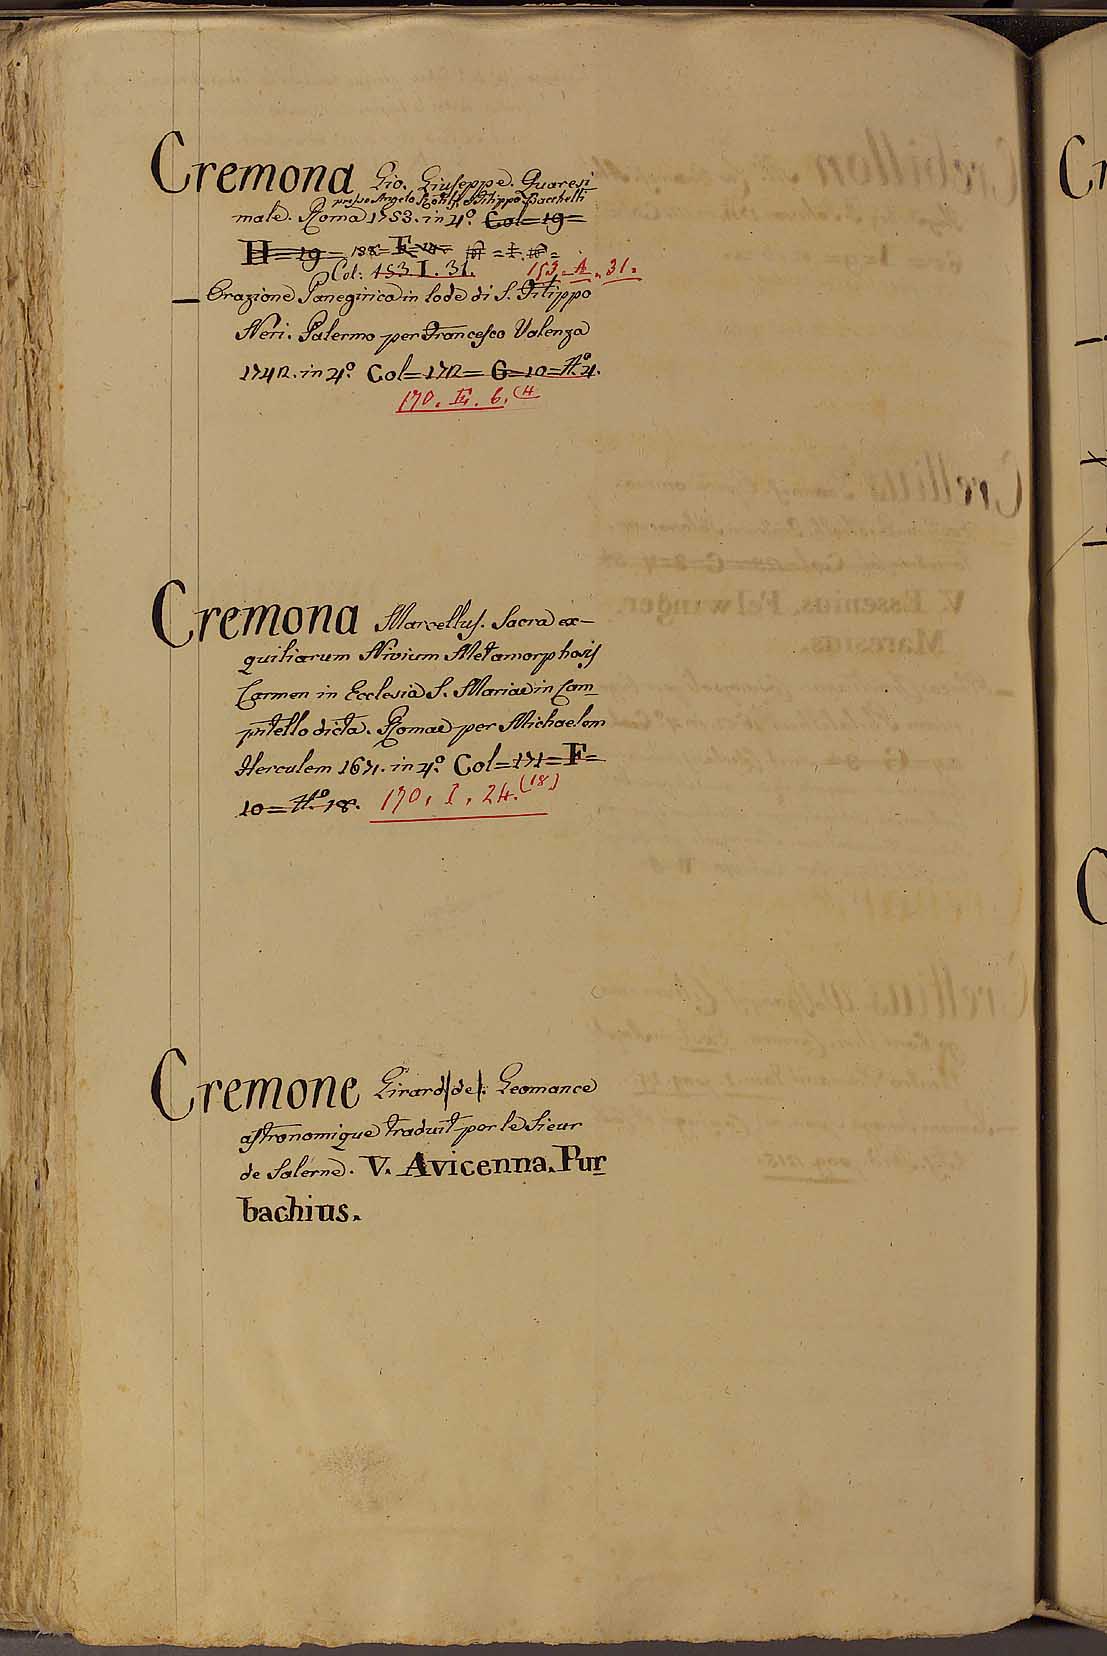 Cremona Gio. Giuseppe. Quaresi-
presso Angelo Rotilj, e Filippo Bacchelli
male. Roma 1753. in 4º. Col=19=
H=19=
Col: 153. I. 31. 153. A. 31.
— Orazione Panegirica in lode di S. Filippo
Neri. Palermo per Francesco Valenza
1742. in 4º. Col=172= G=10=Nº.4.
170. E. 6. (4
Cremona Marcellus. Sacra ex-
quiliarum Nivium Metamorphosis
Carmen in Ecclesia S. Mariae in Cam-
pitello dicta. Romae per Michaelem
Herculem 1671. in 4º. Col=171=F=
10=Nº.18. 170. I. 24. (18)
Cremone Girard (de). Geomance
astronomique traduit par le Sieur
de Salerne. V. Avicenna. Pur-
bachius.
Cr
C